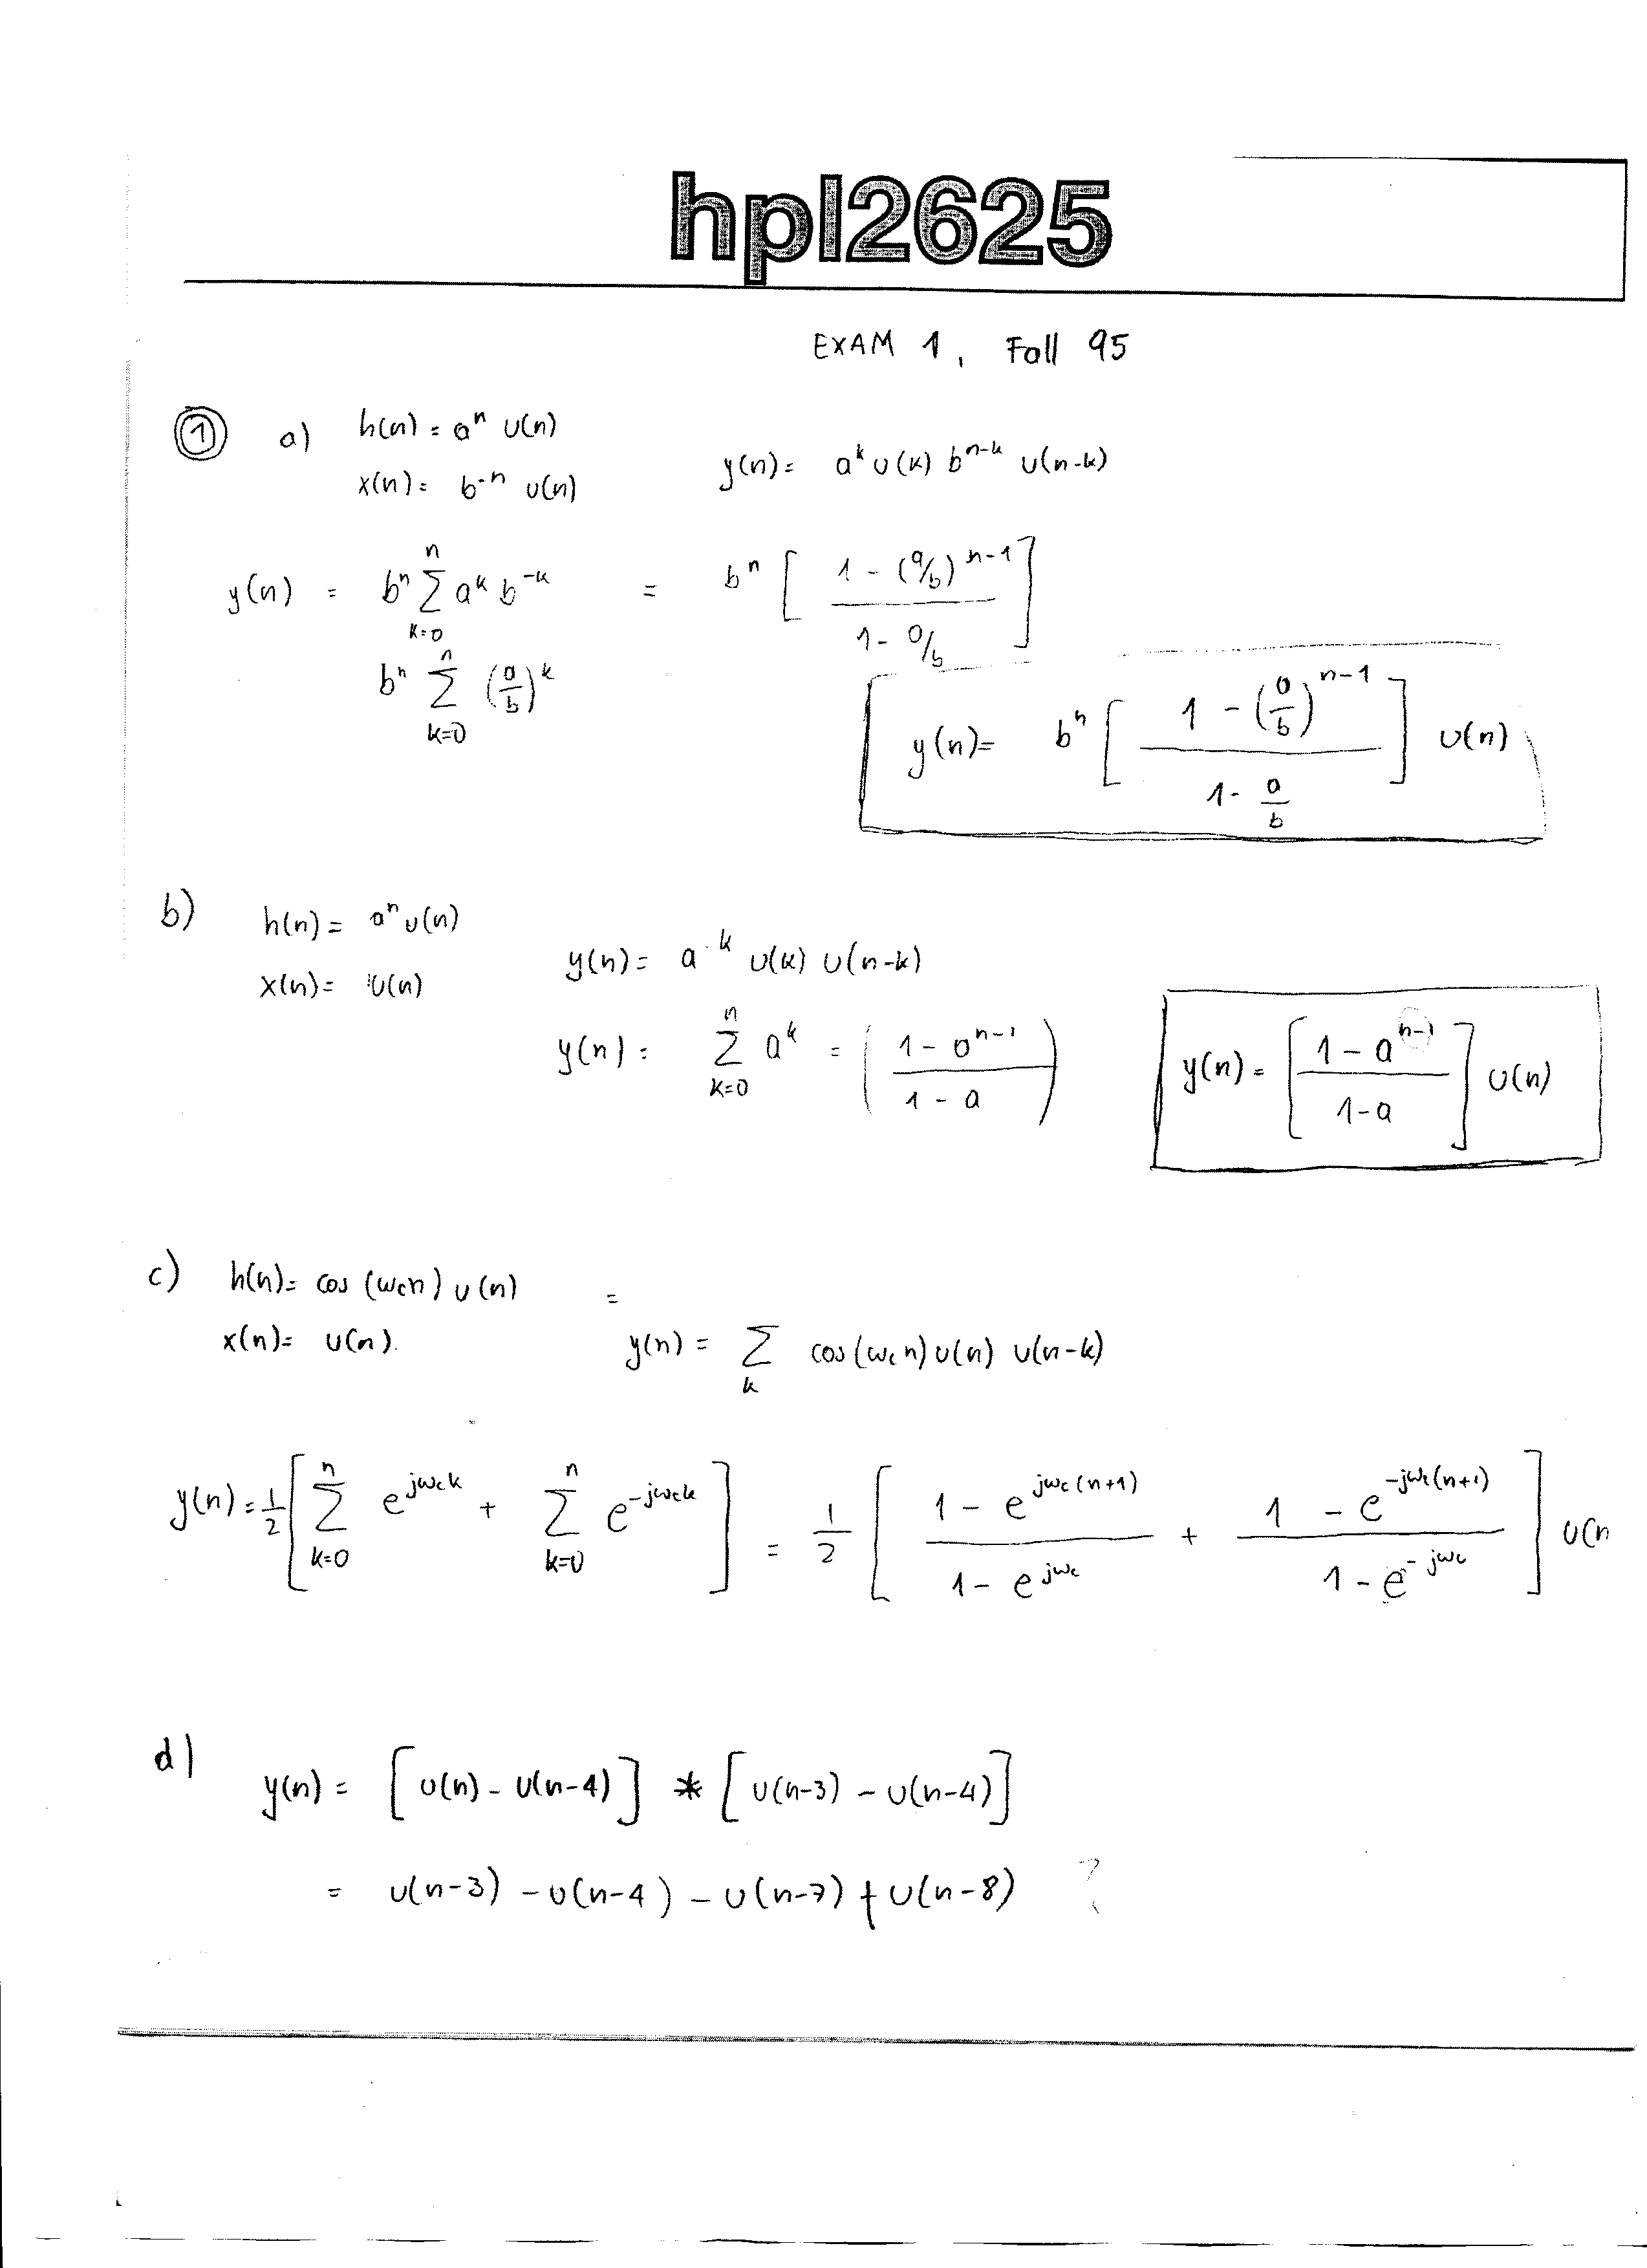 hpl2625
EXAM 1, Fall 95
① a) h(n) = aⁿ u(n)
x(n) = b⁻ⁿ u(n)
y(n) = aᵏ u(k) bⁿ⁻ᵏ u(n-k)
y(n) = bⁿ Σ_{k=0}^{n} aᵏ b⁻ᵏ = bⁿ [ (1 - (a/b)^{n-1}) / (1 - a/b) ]
bⁿ Σ_{k=0}^{n} (a/b)ᵏ
y(n) = bⁿ [ (1 - (a/b)^{n-1}) / (1 - a/b) ] u(n)
b) h(n) = aⁿ u(n)
x(n) = u(n)
y(n) = a^k u(k) u(n-k)
y(n) = Σ_{k=0}^{n} aᵏ = ( (1 - a^{n-1}) / (1 - a) )
y(n) = [ (1 - a^{n-1}) / (1-a) ] u(n)
c) h(n) = cos (ωcn) u(n) =
x(n) = u(n).
y(n) = Σ_{k} cos(ωcn) u(n) u(n-k)
y(n) = 1/2 [ Σ_{k=0}^{n} e^{jωck} + Σ_{k=0}^{n} e^{-jωck} ] = 1/2 [ (1 - e^{jωc(n+1)}) / (1 - e^{jωc}) + (1 - e^{-jωc(n+1)}) / (1 - e^{-jωc}) ] u(n
d) y(n) = [ u(n) - u(n-4) ] * [ u(n-3) - u(n-4) ]
= u(n-3) - u(n-4) - u(n-7) + u(n-8) ?